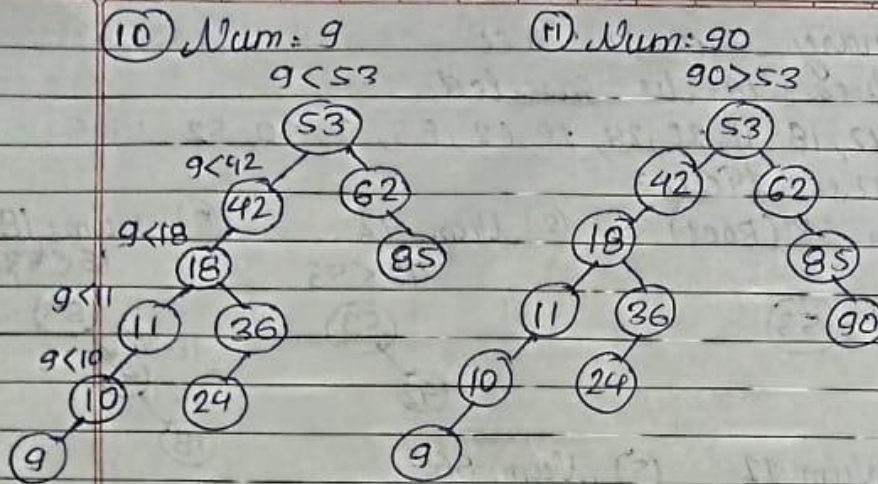 10 Num: 9
9<53
53
9<42
42
62
9<18
18
85
9<11
11
36
9<10
10
24
9
11 Num: 90
90>53
53
42
62
18
85
11
36
90
10
24
9